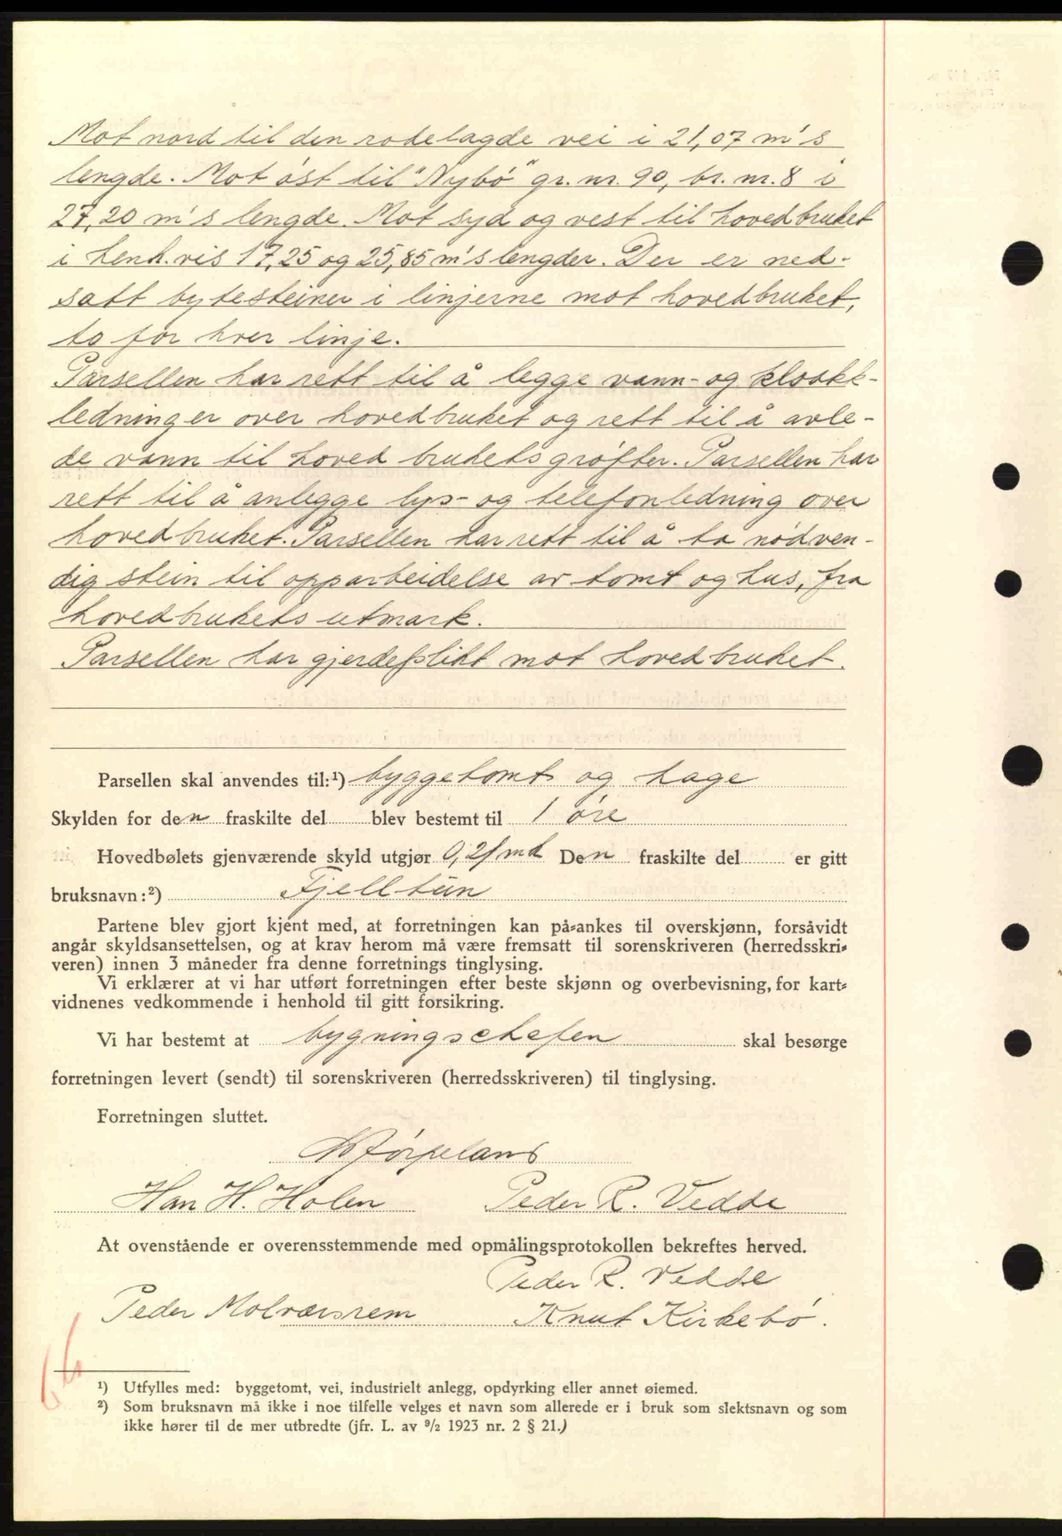 Mot nord til den rodelagde vei i 21,07 m's
lengde. Mot øst til "Nybø" gr. nr. 90, br. nr. 8 i
27,20 m's lengde. Mot syd og vest til hovedbruket
i henh.vis 17,25 og 25,85 m's lengder. Der er ned-
satt bytesteiner i linjerne mot hovedbruket,
to for hver linje.
Parsellen har rett til å legge vann- og kloakk-
ledninger over hovedbruket og rett til å avle-
de vann til hovedbrukets grøfter. Parsellen har
rett til å anlegge lys- og telefonledning over
hovedbruket. Parsellen har rett til å ta nødven-
dig stein til opparbeidelse av tomt og hus, fra
hovedbrukets utmark.
Parsellen har gjerdeplikt mot hovedbruket.
Parsellen skal anvendes til:¹) byggetomt og hage
Skylden for den fraskilte del blev bestemt til 1 øre
Hovedbølets gjenværende skyld utgjør 0,21 mk Den fraskilte del er gitt
bruksnavn:²) Fjelltun
Partene blev gjort kjent med, at forretningen kan på-ankes til overskjønn, forsåvidt
angår skyldsansettelsen, og at krav herom må være fremsatt til sorenskriveren (herredsskri-
veren) innen 3 måneder fra denne forretnings tinglysing.
Vi erklærer at vi har utført forretningen efter beste skjønn og overbevisning, for kart-
vidnenes vedkommende i henhold til gitt forsikring.
Vi har bestemt at bygningschefen skal besørge
forretningen levert (sendt) til sorenskriveren (herredsskriveren) til tinglysing.
Forretningen sluttet.
Han H. Holen Peder R. Vedde
At ovenstående er overensstemmende med opmålingsprotokollen bekreftes herved.
Peder R. Vedde
Peder Molværsrem Knut Kirkebø.
¹) Utfylles med: byggetomt, vei, industrielt anlegg, opdyrking eller annet øiemed.
²) Som bruksnavn må ikke i noe tilfelle velges et navn som allerede er i bruk som slektsnavn og som
ikke hører til de mer utbredte (jfr. L. av ⁹/₂ 1923 nr. 2 § 21.)